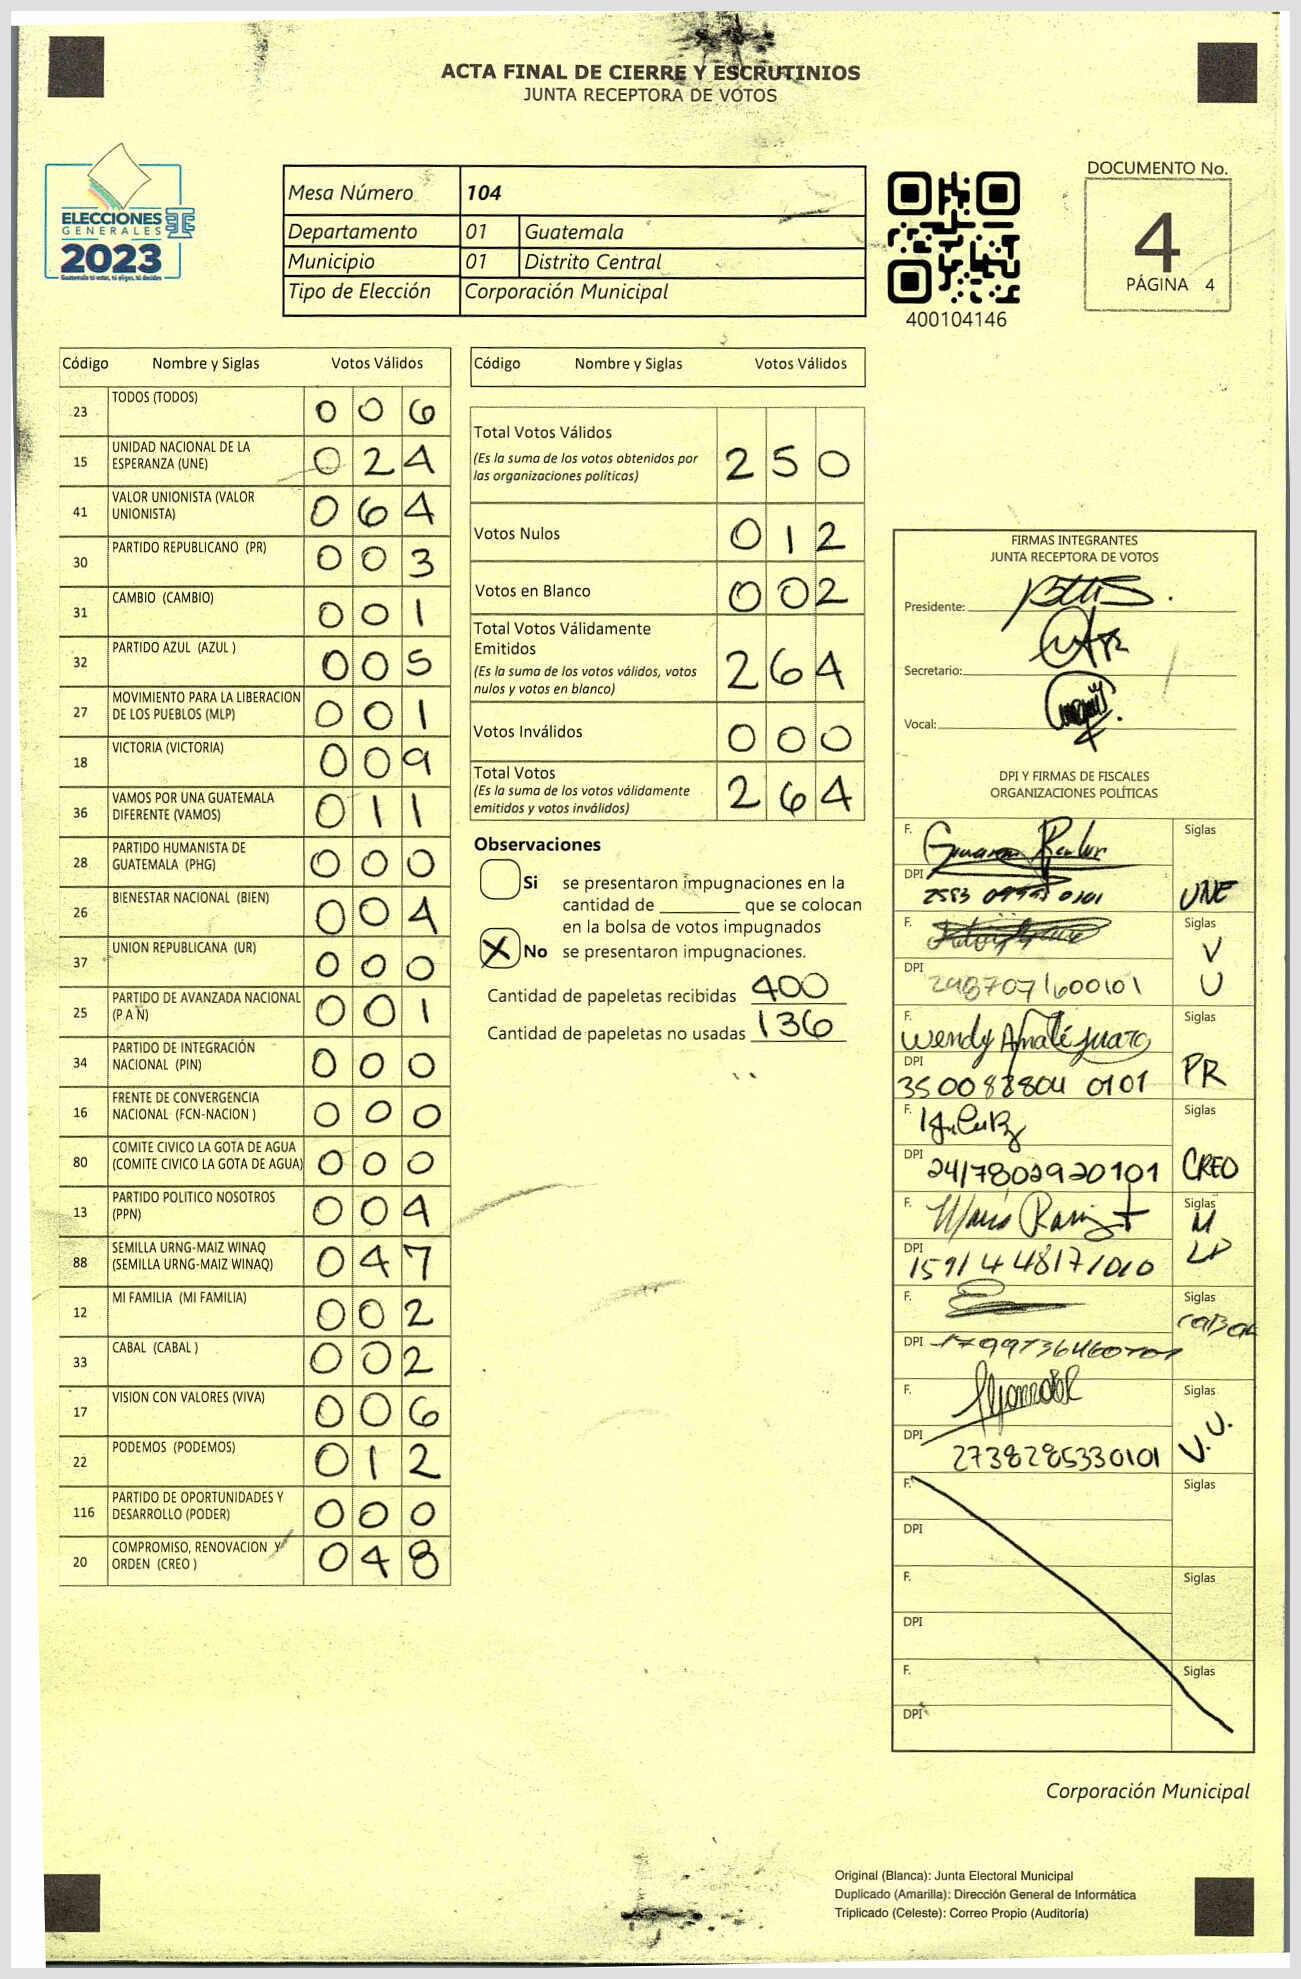 ACTA FINAL DE CIERRE Y ESCRUTINIOS
JUNTA RECEPTORA DE VOTOS
ELECCIONES
GENERALES
2023
Guatemala tú votas, tú eliges, tú decides
Mesa Número 104
Departamento 01 Guatemala
Municipio 01 Distrito Central
Tipo de Elección Corporación Municipal
400104146
DOCUMENTO No.
4
PÁGINA 4
Código Nombre y Siglas Votos Válidos
23 TODOS (TODOS) 0 0 6
15 UNIDAD NACIONAL DE LA
ESPERANZA (UNE) 0 2 4
41 VALOR UNIONISTA (VALOR
UNIONISTA) 0 6 4
30 PARTIDO REPUBLICANO (PR) 0 0 3
31 CAMBIO (CAMBIO) 0 0 1
32 PARTIDO AZUL (AZUL ) 0 0 5
27 MOVIMIENTO PARA LA LIBERACION
DE LOS PUEBLOS (MLP) 0 0 1
18 VICTORIA (VICTORIA) 0 0 9
36 VAMOS POR UNA GUATEMALA
DIFERENTE (VAMOS) 0 1 1
28 PARTIDO HUMANISTA DE
GUATEMALA (PHG) 0 0 0
26 BIENESTAR NACIONAL (BIEN) 0 0 4
37 UNION REPUBLICANA (UR) 0 0 0
25 PARTIDO DE AVANZADA NACIONAL
(P A N) 0 0 1
34 PARTIDO DE INTEGRACIÓN
NACIONAL (PIN) 0 0 0
16 FRENTE DE CONVERGENCIA
NACIONAL (FCN-NACION ) 0 0 0
80 COMITE CIVICO LA GOTA DE AGUA
(COMITE CIVICO LA GOTA DE AGUA) 0 0 0
13 PARTIDO POLITICO NOSOTROS
(PPN) 0 0 4
88 SEMILLA URNG-MAIZ WINAQ
(SEMILLA URNG-MAIZ WINAQ) 0 4 7
12 MI FAMILIA (MI FAMILIA) 0 0 2
33 CABAL (CABAL ) 0 0 2
17 VISION CON VALORES (VIVA) 0 0 6
22 PODEMOS (PODEMOS) 0 1 2
116 PARTIDO DE OPORTUNIDADES Y
DESARROLLO (PODER) 0 0 0
20 COMPROMISO, RENOVACION Y
ORDEN (CREO ) 0 4 8
Código Nombre y Siglas Votos Válidos
Total Votos Válidos
(Es la suma de los votos obtenidos por
las organizaciones políticas) 2 5 0
Votos Nulos 0 1 2
Votos en Blanco 0 0 2
Total Votos Válidamente
Emitidos
(Es la suma de los votos válidos, votos
nulos y votos en blanco) 2 6 4
Votos Inválidos 0 0 0
Total Votos
(Es la suma de los votos válidamente
emitidos y votos inválidos) 2 6 4
Observaciones
Si se presentaron impugnaciones en la
cantidad de ________ que se colocan
en la bolsa de votos impugnados
X No se presentaron impugnaciones.
Cantidad de papeletas recibidas 400
Cantidad de papeletas no usadas 136
FIRMAS INTEGRANTES
JUNTA RECEPTORA DE VOTOS
Presidente:
Secretario:
Vocal:
DPI Y FIRMAS DE FISCALES
ORGANIZACIONES POLÍTICAS
F. Siglas
DPI UNE
F. Siglas
DPI V U
F. Wendy Siglas
DPI PR
F. Siglas
DPI 2417802920101 CREO
F. Siglas
DPI 1591448171010 M LP
F. Siglas
DPI CABAL
F. Siglas
DPI 2738285330101 V.U.
F. Siglas
DPI
F. Siglas
DPI
F. Siglas
DPI
Corporación Municipal
Original (Blanca): Junta Electoral Municipal
Duplicado (Amarilla): Dirección General de Informática
Triplicado (Celeste): Correo Propio (Auditoría)